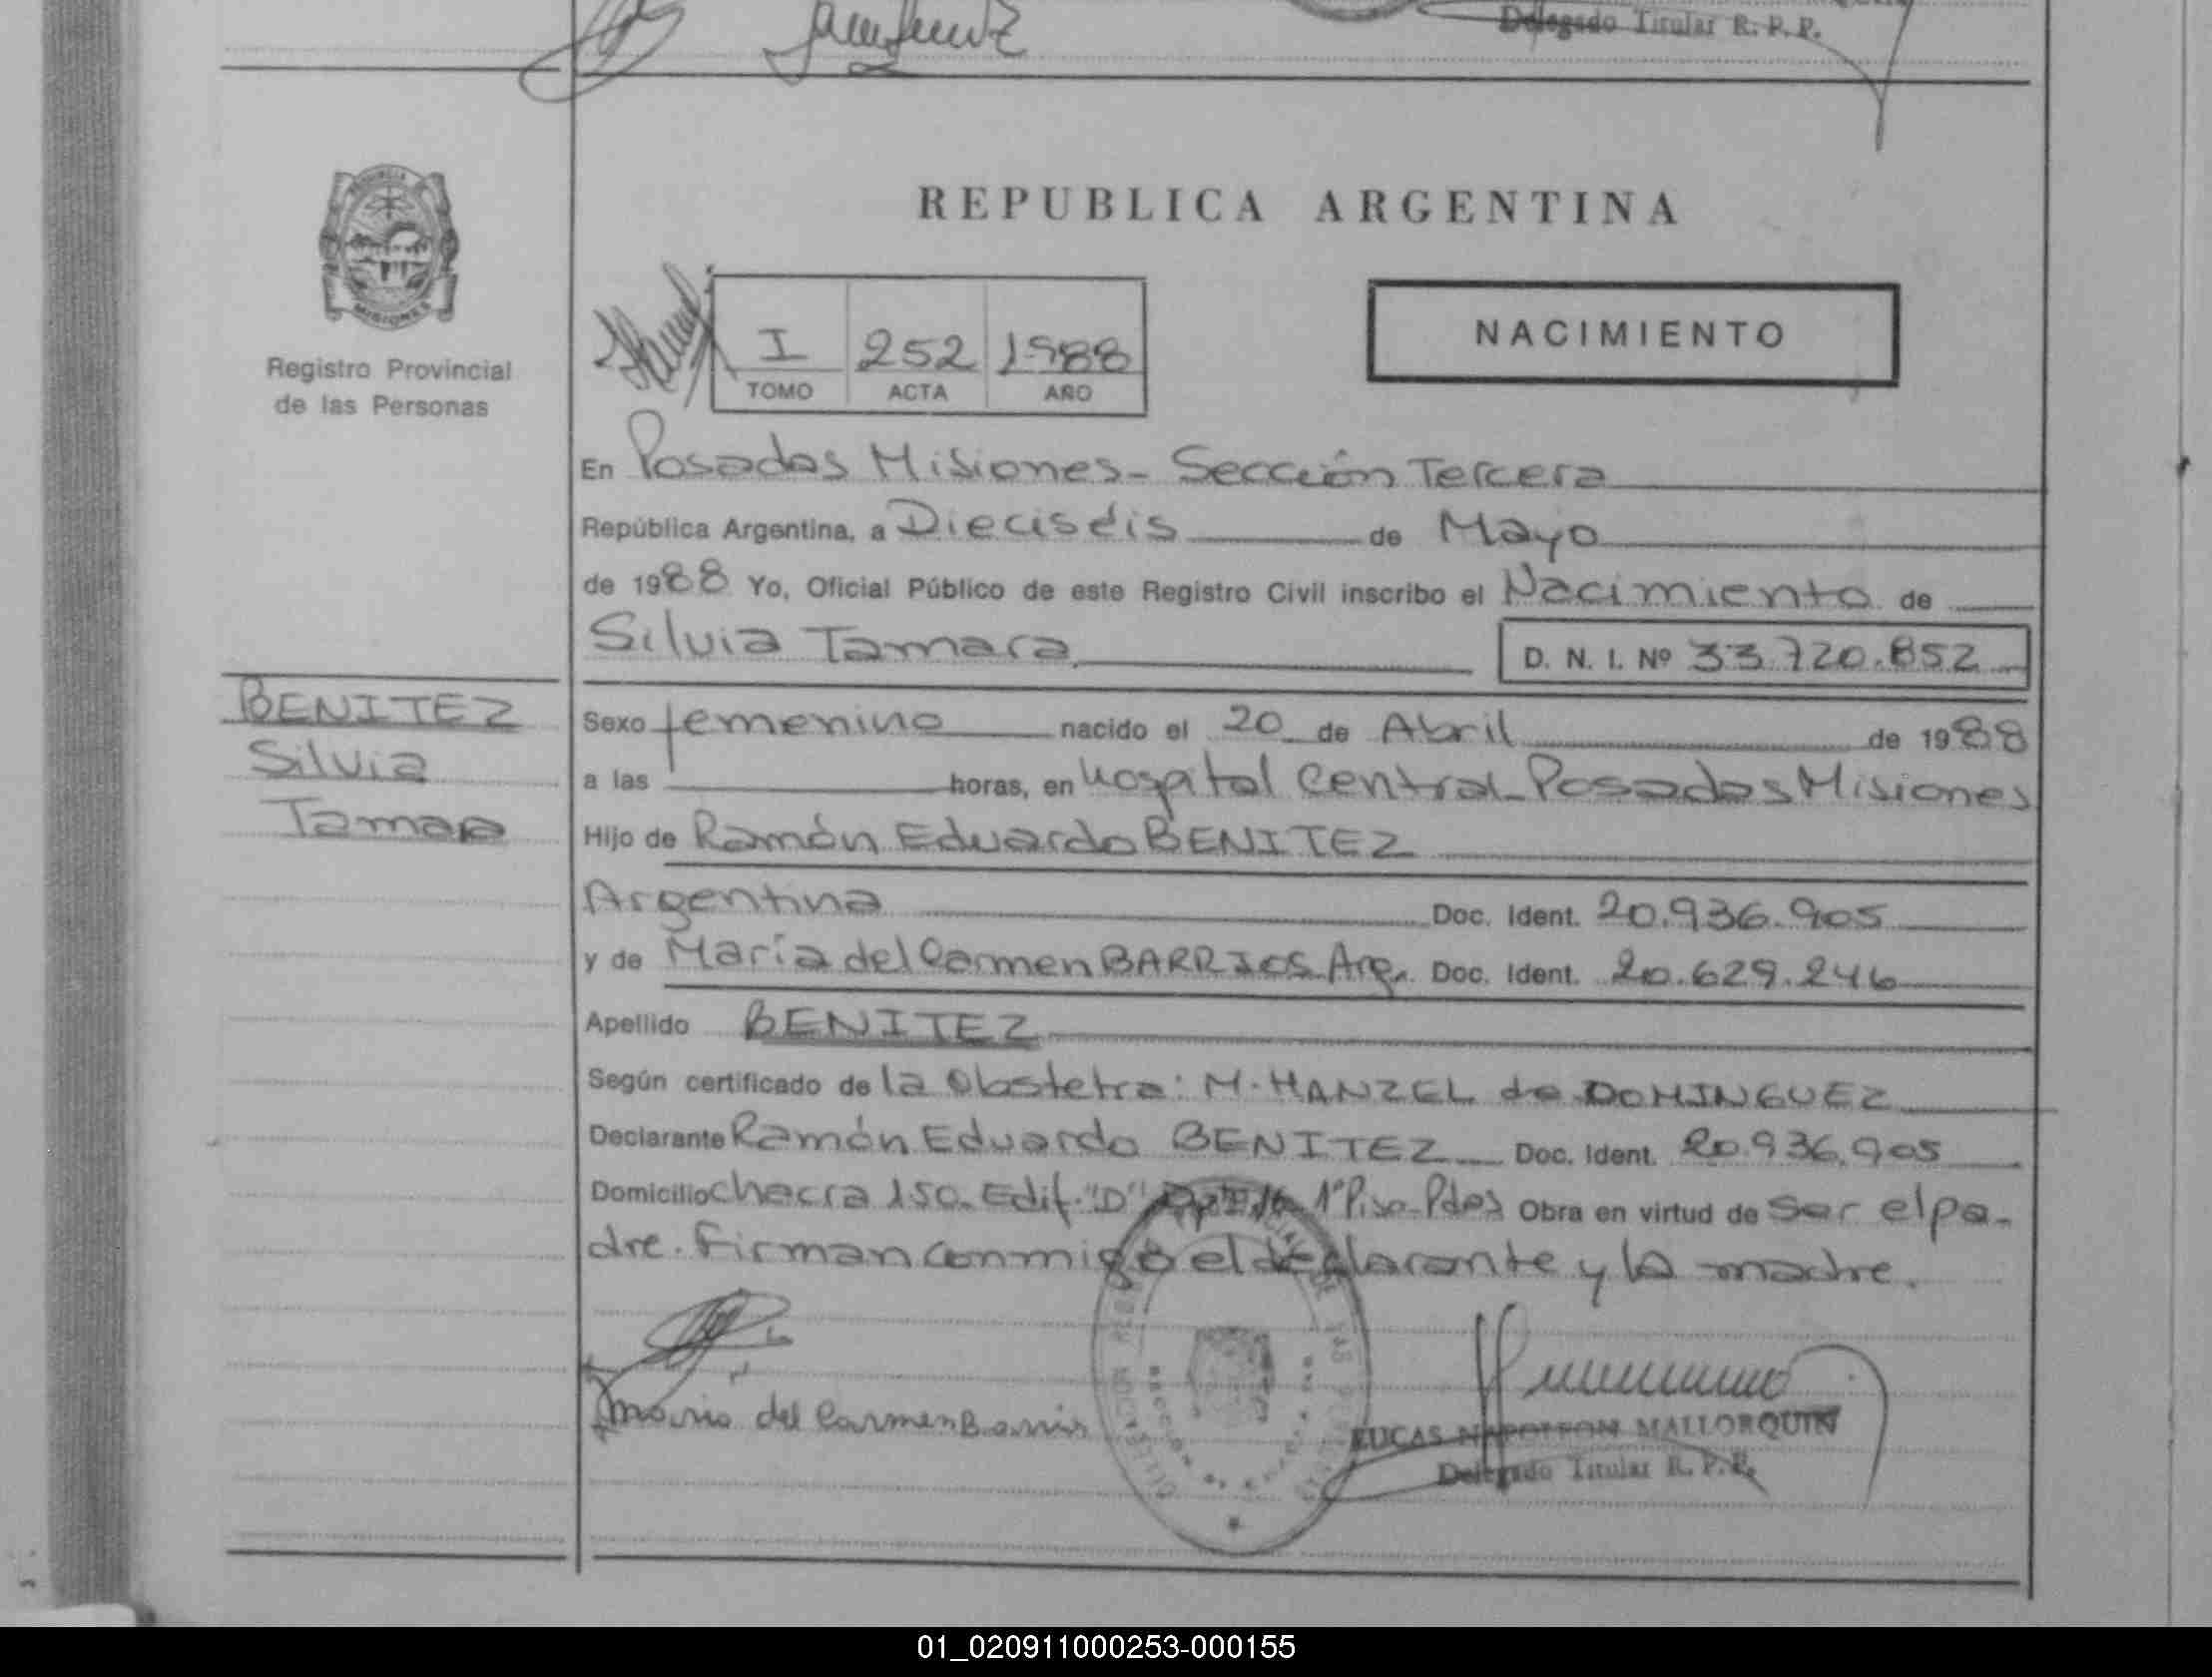 Delegado Titular R. P. P.
PROVINCIA
MISIONES
Registro Provincial
de las Personas
REPUBLICA ARGENTINA
I 252 1988
TOMO ACTA AÑO
NACIMIENTO
En Posadas Misiones - Sección Tercera
República Argentina, a Dieciséis de Mayo
de 1988 Yo, Oficial Público de este Registro Civil inscribo el Nacimiento de
Silvia Tamara
D. N. I. Nº 33.720.852
BENITEZ
Silvia
Tamara
Sexo femenino nacido el 20 de Abril de 1988
a las horas, en Hospital Central - Posadas Misiones
Hijo de Ramón Eduardo BENITEZ
Argentina Doc. Ident. 20.936.905
y de María del Carmen BARRIOS Arg. Doc. Ident. 20.629.246
Apellido BENITEZ
Según certificado de la Obstetra: M. HANZEL de DOMINGUEZ
Declarante Ramón Eduardo BENITEZ Doc. Ident. 20.936.905
Domicilio Chacra 150 - Edif. "D" 1º Piso - Pdas Obra en virtud de Ser el pa-
dre. Firman conmigo el declarante y la madre.
Maria del Carmen Barrios
LUCAS NAPOLEON MALLORQUIN
Delegado Titular R. P. P.
01_020911000253-000155